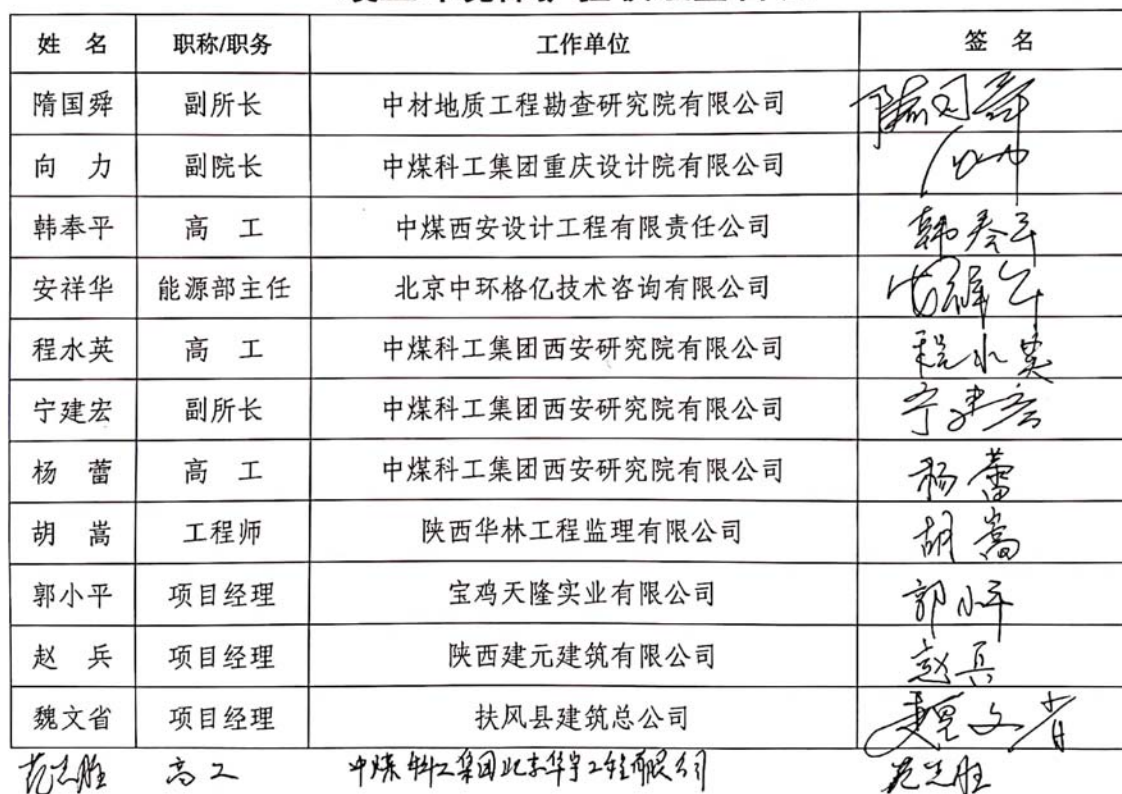 姓 名 职称/职务 工作单位 签 名
隋国舜 副所长 中材地质工程勘查研究院有限公司 隋国舜
向 力 副院长 中煤科工集团重庆设计院有限公司 向力
韩奉平 高 工 中煤西安设计工程有限责任公司 韩奉平
安祥华 能源部主任 北京中环格亿技术咨询有限公司 安祥华
程水英 高 工 中煤科工集团西安研究院有限公司 程水英
宁建宏 副所长 中煤科工集团西安研究院有限公司 宁建宏
杨 蕾 高 工 中煤科工集团西安研究院有限公司 杨蕾
胡 嵩 工程师 陕西华林工程监理有限公司 胡嵩
郭小平 项目经理 宝鸡天隆实业有限公司 郭小平
赵 兵 项目经理 陕西建元建筑有限公司 赵兵
魏文省 项目经理 扶风县建筑总公司 魏文省
范志胜 高工 中煤科工集团北京华宇工程有限公司 范志胜